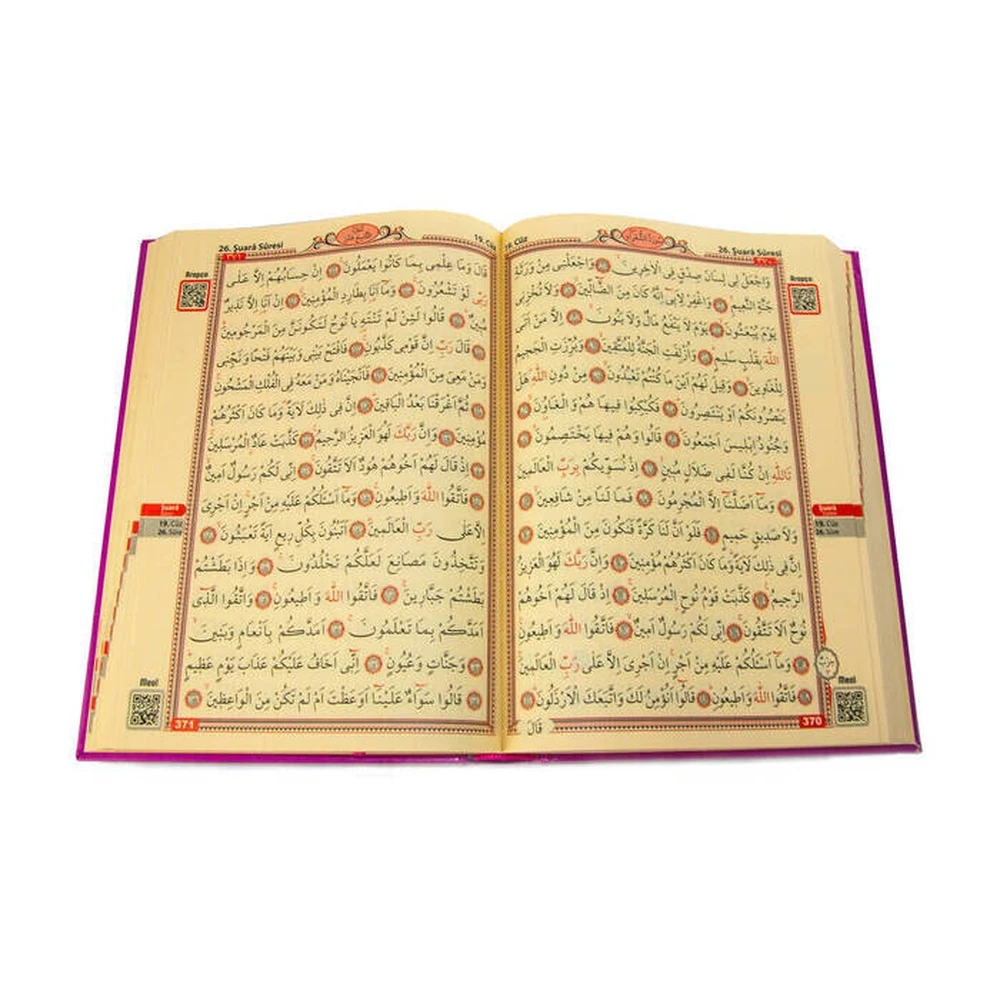 19. Cüz
26. Şuarâ Sûresi
Arapça
وَاجْعَلْ لِى لِسَانَ صِدْقٍ فِى الْاٰخِرِينَ وَاجْعَلْنِى مِنْ وَرَثَةِ
جَنَّةِ النَّعِيمِ وَاغْفِرْ لِاَبِى اِنَّهُ كَانَ مِنَ الضَّالِّينَ وَلَا تُخْزِنِى
يَوْمَ يُبْعَثُونَ يَوْمَ لَا يَنْفَعُ مَالٌ وَلَا بَنُونَ اِلَّا مَنْ اَتَى
اللّٰهَ بِقَلْبٍ سَلِيمٍ وَاُزْلِفَتِ الْجَنَّةُ لِلْمُتَّقِينَ وَبُرِّزَتِ الْجَحِيمُ
لِلْغَاوِينَ وَقِيلَ لَهُمْ اَيْنَ مَا كُنْتُمْ تَعْبُدُونَ مِنْ دُونِ اللّٰهِ هَلْ
يَنْصُرُونَكُمْ اَوْ يَنْتَصِرُونَ فَكُبْكِبُوا فِيهَا هُمْ وَالْغَاوُنَ
وَجُنُودُ اِبْلِيسَ اَجْمَعُونَ قَالُوا وَهُمْ فِيهَا يَخْتَصِمُونَ
تَاللّٰهِ اِنْ كُنَّا لَفِى ضَلَالٍ مُبِينٍ اِذْ نُسَوِّيكُمْ بِرَبِّ الْعَالَمِينَ
وَمَا اَضَلَّنَا اِلَّا الْمُجْرِمُونَ فَمَا لَنَا مِنْ شَافِعِينَ
وَلَا صَدِيقٍ حَمِيمٍ فَلَوْ اَنَّ لَنَا كَرَّةً فَنَكُونَ مِنَ الْمُؤْمِنِينَ
اِنَّ فِى ذٰلِكَ لَاٰيَةً وَمَا كَانَ اَكْثَرُهُمْ مُؤْمِنِينَ وَاِنَّ رَبَّكَ لَهُوَ الْعَزِيزُ
الرَّحِيمُ كَذَّبَتْ قَوْمُ نُوحٍ الْمُرْسَلِينَ اِذْ قَالَ لَهُمْ اَخُوهُمْ
نُوحٌ اَلَا تَتَّقُونَ اِنِّى لَكُمْ رَسُولٌ اَمِينٌ فَاتَّقُوا اللّٰهَ وَاَطِيعُونِ
وَمَا اَسْـَٔلُكُمْ عَلَيْهِ مِنْ اَجْرٍ اِنْ اَجْرِىَ اِلَّا عَلٰى رَبِّ الْعَالَمِينَ
فَاتَّقُوا اللّٰهَ وَاَطِيعُونِ قَالُوا اَنُؤْمِنُ لَكَ وَاتَّبَعَكَ الْاَرْذَلُونَ
قَالَ
Şuarâ
19. Cüz
26. Sûre
Meal
370
26. Şuarâ Sûresi
19. Cüz
Arapça
قَالَ وَمَا عِلْمِى بِمَا كَانُوا يَعْمَلُونَ اِنْ حِسَابُهُمْ اِلَّا عَلٰى
رَبِّى لَوْ تَشْعُرُونَ وَمَا اَنَا بِطَارِدِ الْمُؤْمِنِينَ اِنْ اَنَا اِلَّا نَذِيرٌ
مُبِينٌ قَالُوا لَئِنْ لَمْ تَنْتَهِ يَا نُوحُ لَتَكُونَنَّ مِنَ الْمَرْجُومِينَ
قَالَ رَبِّ اِنَّ قَوْمِى كَذَّبُونِ فَافْتَحْ بَيْنِى وَبَيْنَهُمْ فَتْحًا وَنَجِّنِى
وَمَنْ مَعِىَ مِنَ الْمُؤْمِنِينَ فَاَنْجَيْنَاهُ وَمَنْ مَعَهُ فِى الْفُلْكِ الْمَشْحُونِ
ثُمَّ اَغْرَقْنَا بَعْدُ الْبَاقِينَ اِنَّ فِى ذٰلِكَ لَاٰيَةً وَمَا كَانَ اَكْثَرُهُمْ
مُؤْمِنِينَ وَاِنَّ رَبَّكَ لَهُوَ الْعَزِيزُ الرَّحِيمُ كَذَّبَتْ عَادٌ الْمُرْسَلِينَ
اِذْ قَالَ لَهُمْ اَخُوهُمْ هُودٌ اَلَا تَتَّقُونَ اِنِّى لَكُمْ رَسُولٌ اَمِينٌ
فَاتَّقُوا اللّٰهَ وَاَطِيعُونِ وَمَا اَسْـَٔلُكُمْ عَلَيْهِ مِنْ اَجْرٍ اِنْ اَجْرِىَ
اِلَّا عَلٰى رَبِّ الْعَالَمِينَ اَتَبْنُونَ بِكُلِّ رِيعٍ اٰيَةً تَعْبَثُونَ
وَتَتَّخِذُونَ مَصَانِعَ لَعَلَّكُمْ تَخْلُدُونَ وَاِذَا بَطَشْتُمْ
بَطَشْتُمْ جَبَّارِينَ فَاتَّقُوا اللّٰهَ وَاَطِيعُونِ وَاتَّقُوا الَّذِى
اَمَدَّكُمْ بِمَا تَعْلَمُونَ اَمَدَّكُمْ بِاَنْعَامٍ وَبَنِينَ
وَجَنَّاتٍ وَعُيُونٍ اِنِّى اَخَافُ عَلَيْكُمْ عَذَابَ يَوْمٍ عَظِيمٍ
قَالُوا سَوَاءٌ عَلَيْنَا اَوَعَظْتَ اَمْ لَمْ تَكُنْ مِنَ الْوَاعِظِينَ
Şuarâ
19. Cüz
26. Sûre
Meal
371